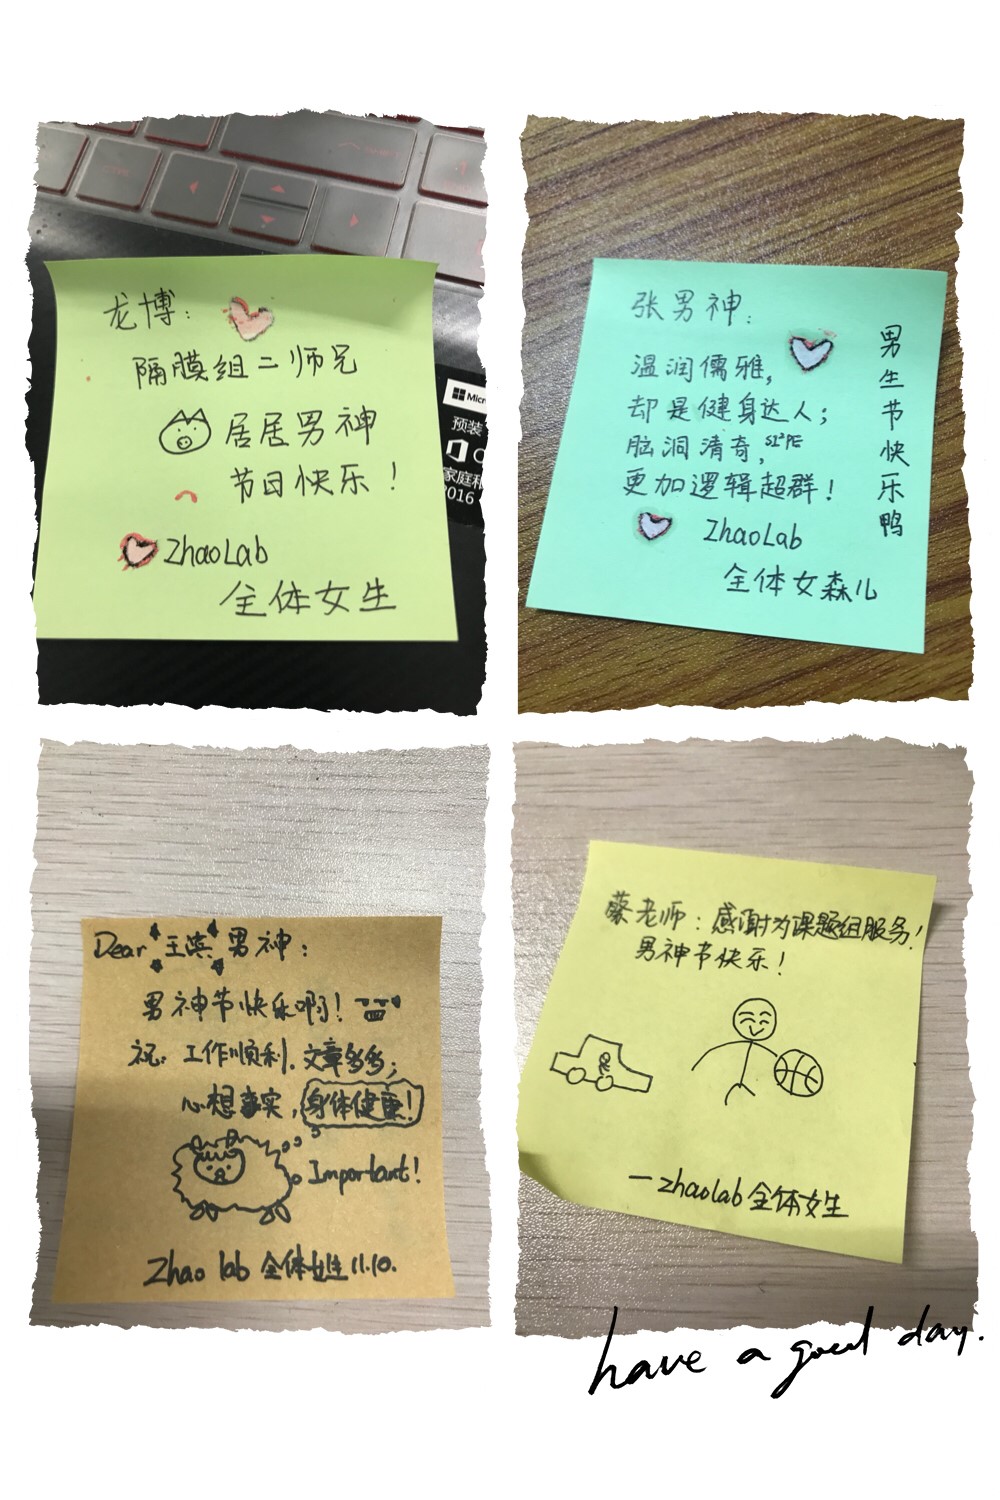 龙博：
隔膜组二师兄
居居男神
节日快乐！
ZhaoLab
全体女生
Micr
预装
家庭和
2016
张男神：
温润儒雅，
却是健身达人；
脑洞清奇，
更加逻辑超群！
ZhaoLab
全体女森儿
男生节快乐鸭
Dear 王滨 男神：
男神节快乐啊！
祝：工作顺利，文章多多；
心想事实，身体健康！
Important!
Zhao lab 全体女生 11.10.
蔡老师：感谢为课题组服务！
男神节快乐！
—zhaolab 全体女生
have a good day.